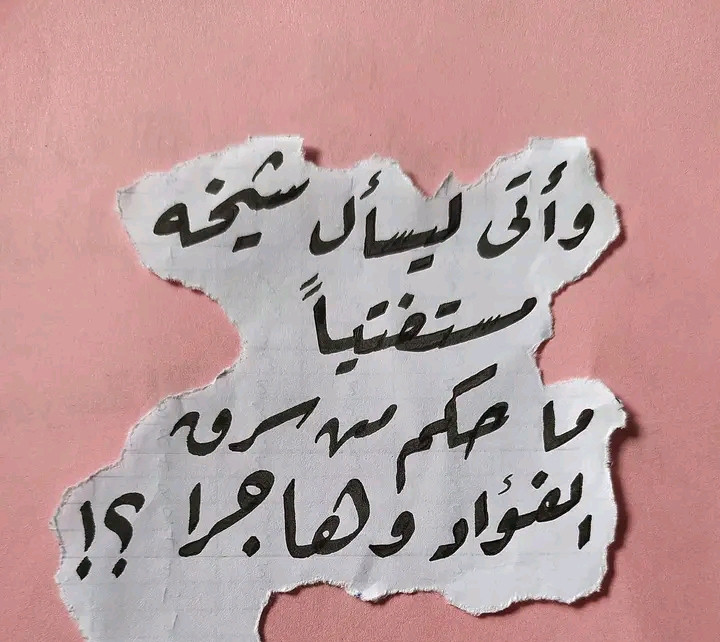 وأتى ليسأل شيخه
مستفتياً
ما حكم من سرق
الفؤاد وهاجرا ؟!